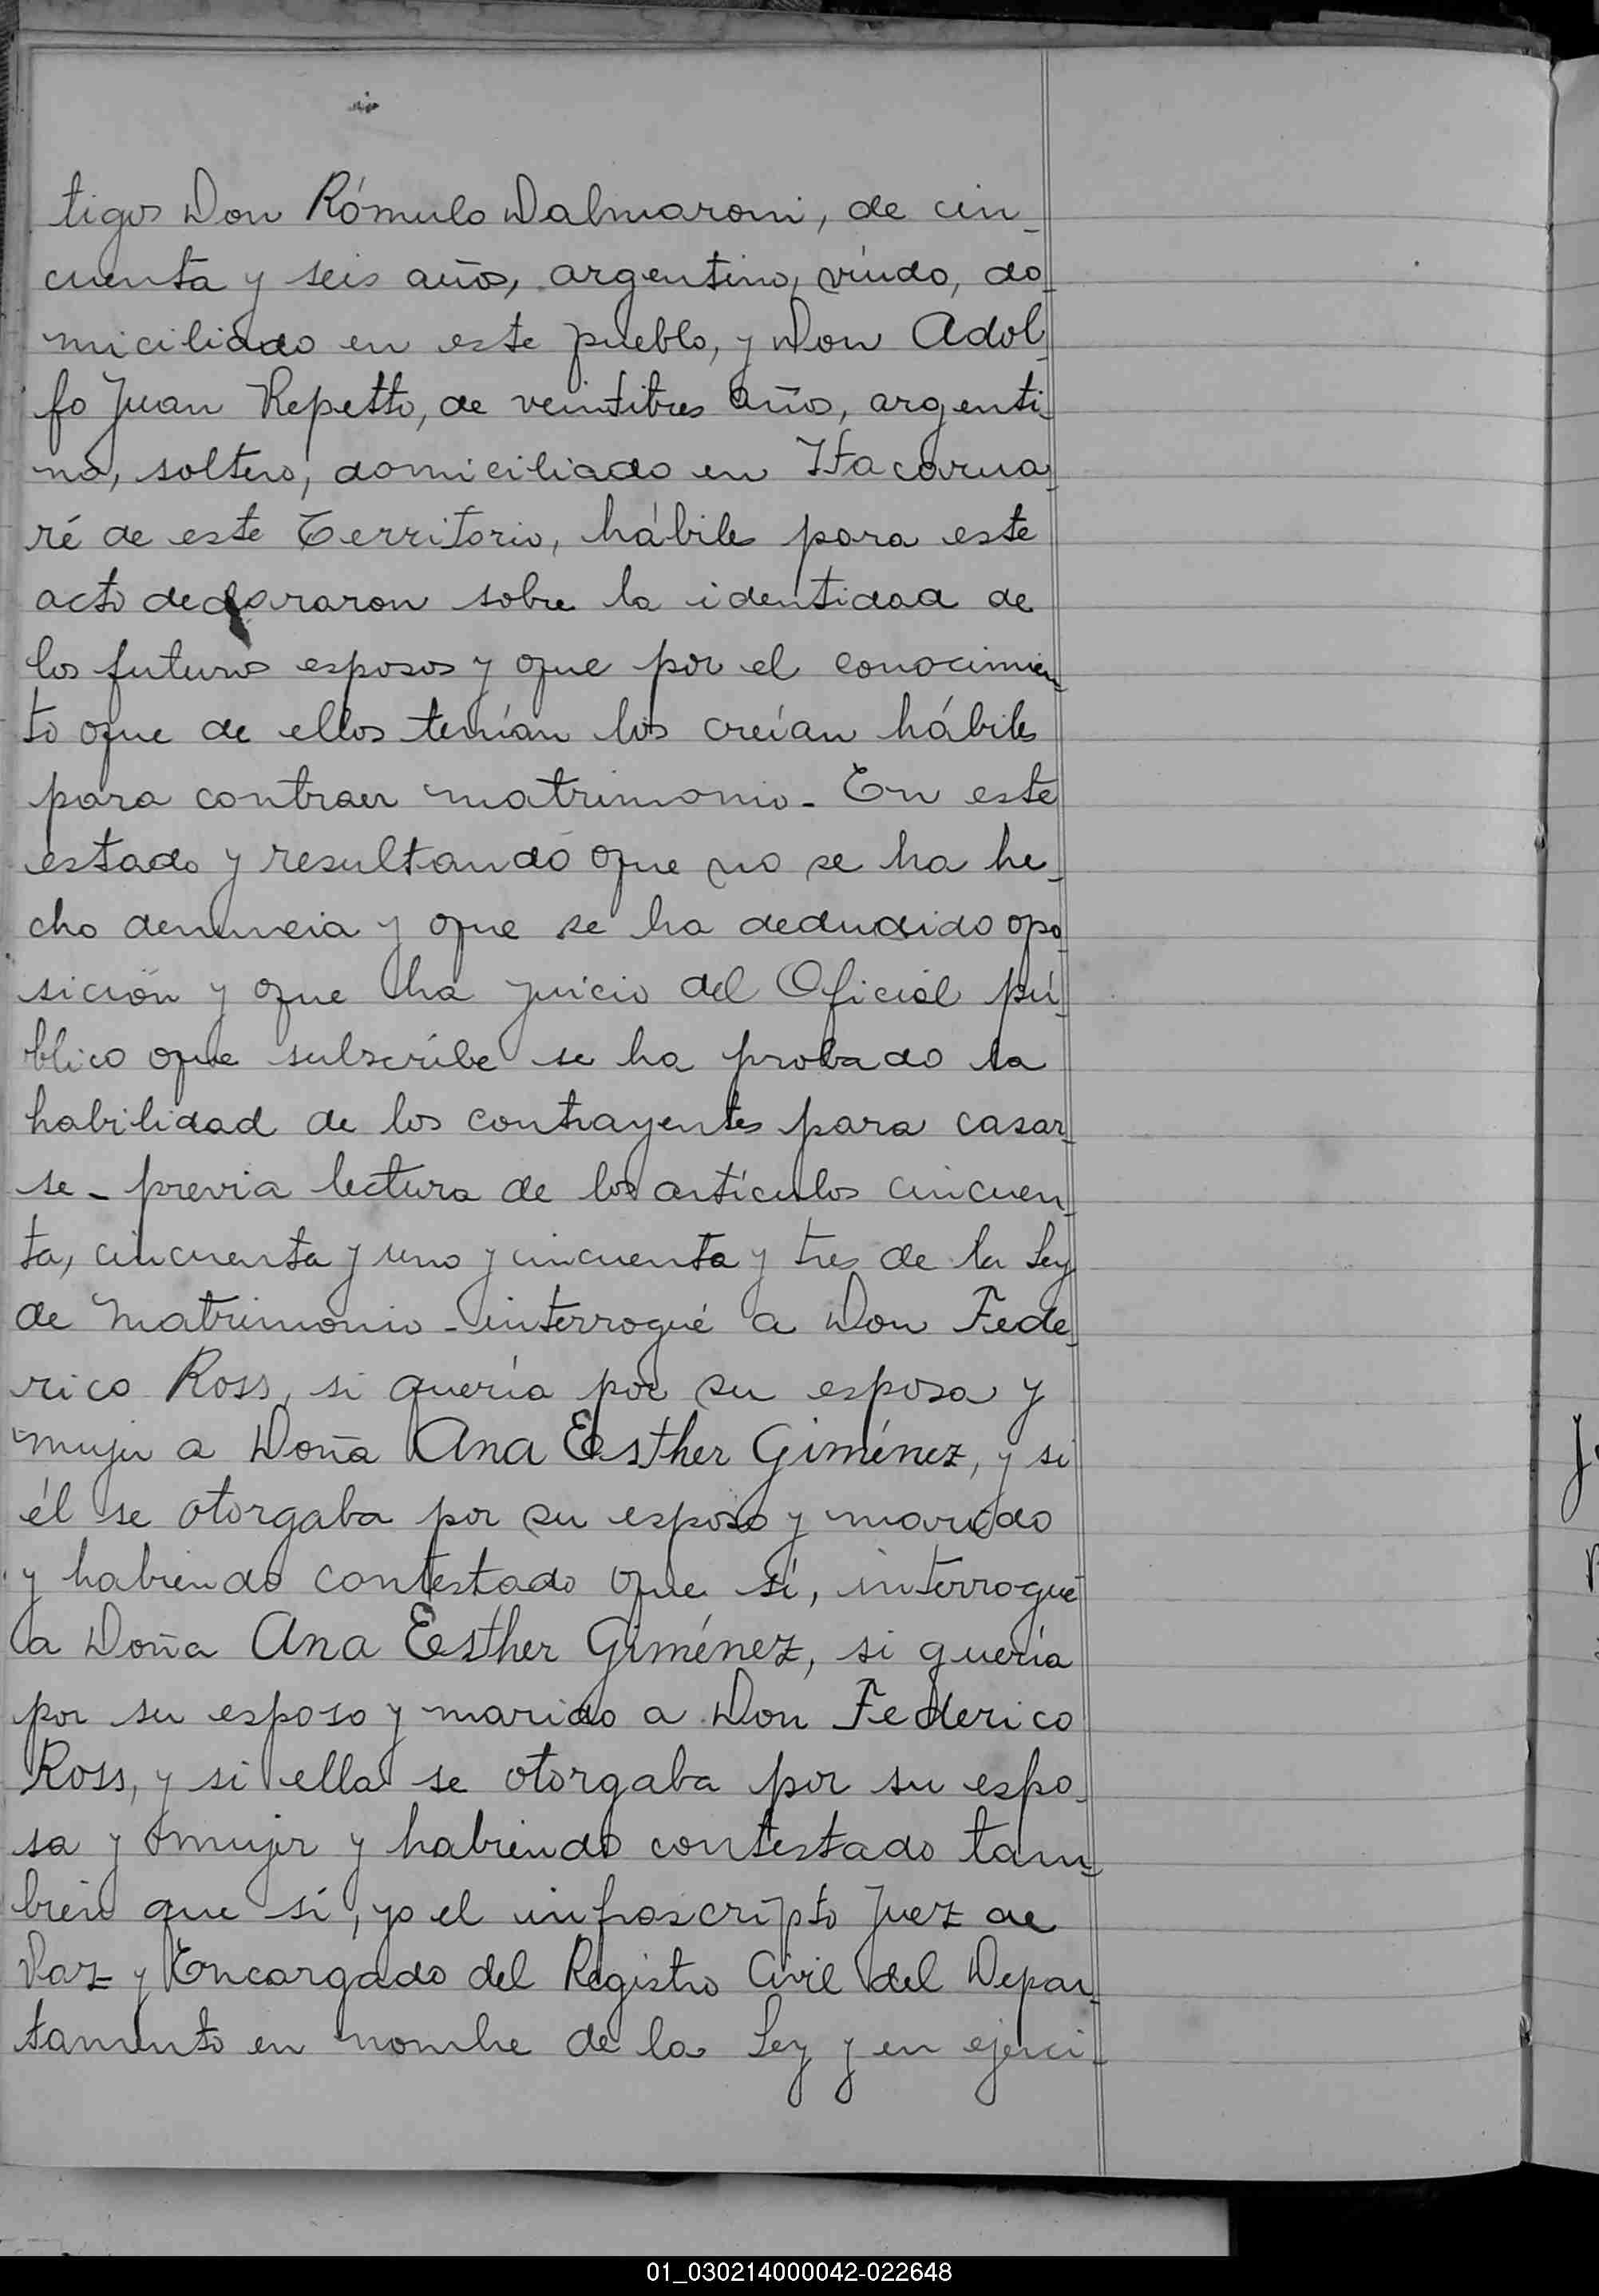 tigos Don Rómulo Dalmaroni, de cin_
cuenta y seis años, argentino, viudo, do_
miciliado en este pueblo, y Don Adol_
fo Juan Repetto, de veintitres años, argenti_
no, soltero, domiciliado en Itacarua_
ré de este Territorio, hábiles para este
acto declararon sobre la identidad de
los futuros esposos y que por el conocimien_
to que de ellos tenían los creían hábiles
para contraer matrimonio_ En este
estado y resultando que no se ha he_
cho denuncia y que se ha deducido opo_
sición y que ha juicio del Oficial pú_
blico que subscribe se ha probado la
habilidad de los contrayentes para casar_
se_ previa lectura de los artículos cincuen_
ta, cincuenta y uno y cincuenta y tres de la Ley
de Matrimonio_ interrogué a Don Fede_
rico Ross, si quería por su esposa y
mujer a Doña Ana Esther Giménez, y si
él se otorgaba por su esposo y marido
y habiendo contestado que sí, interrogué
a Doña Ana Esther Giménez, si quería
por su esposo y marido a Don Federico
Ross, y si ella se otorgaba por su espo_
sa y mujer y habiendo contestado tam_
bien que sí, yo el infrascripto Juez de
Paz y Encargado del Registro Civil del Depar_
tamento en nombre de la Ley y en ejerci_
01_030214000042-022648